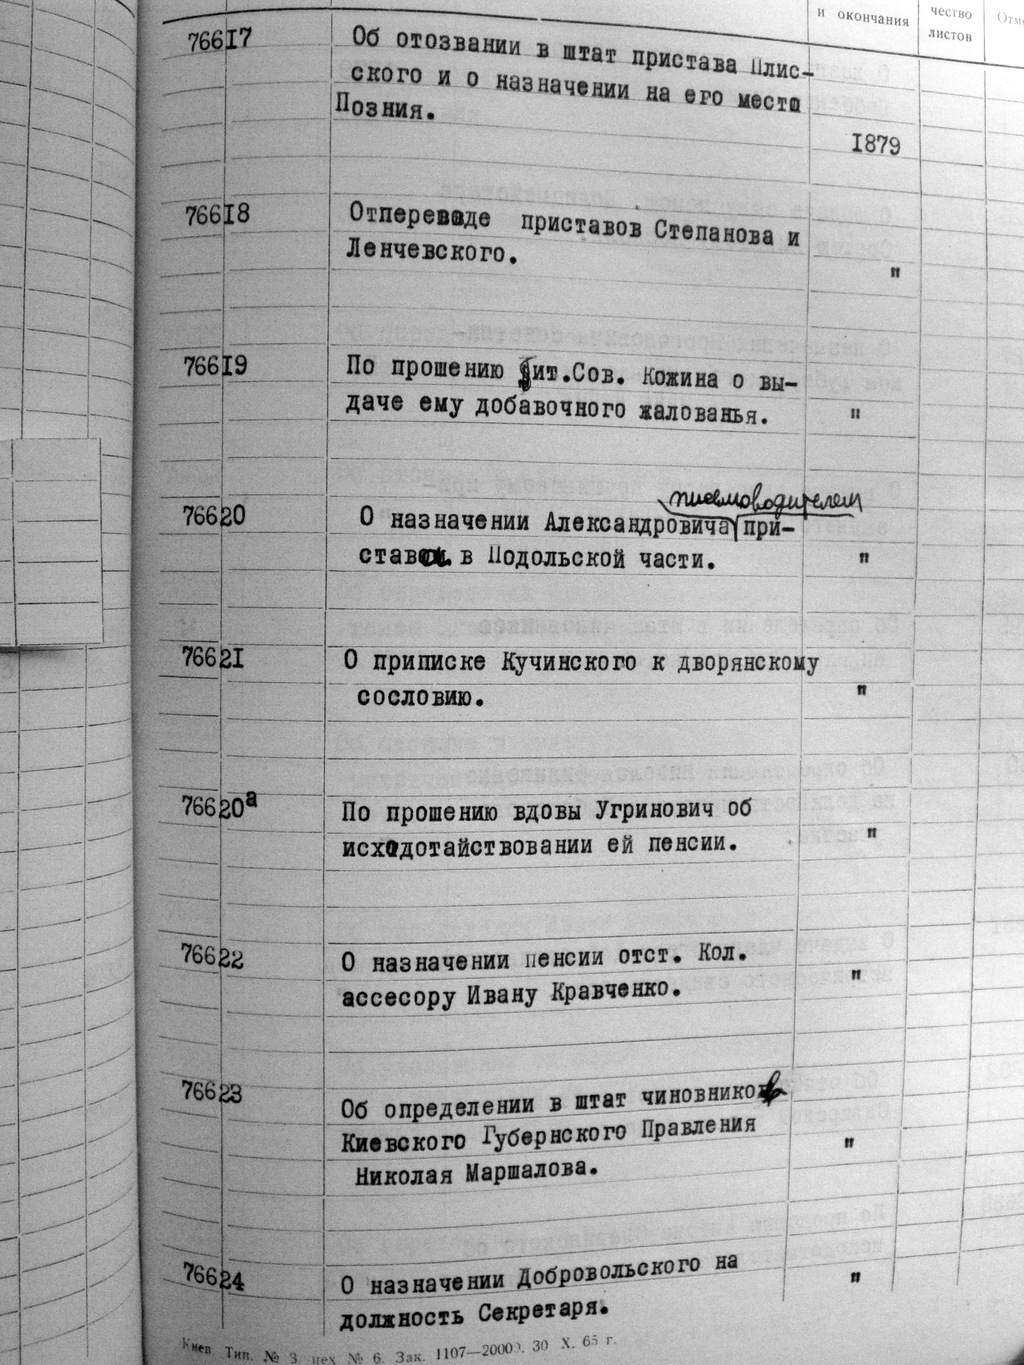 и окончания
чество
листов
76617 Об отозвании в штат пристава Плис-
ского и о назначении на его место
Позния.
1879
76618 Отпереводе приставов Степанова и
Ленчевского.
"
76619 По прошению Тит.Сов. Кожина о вы-
даче ему добавочного жалованья. "
письмоводителем
76620 О назначении Александровича при-
става в Подольской части. "
76621 О приписке Кучинского к дворянскому
сословию. "
76620а По прошению вдовы Угринович об
исходотайствовании ей пенсии. "
76622 О назначении пенсии отст. Кол.
ассесору Ивану Кравченко. "
76623 Об определении в штат чиновников
Киевского Губернского Правления "
Николая Маршалова.
76624 О назначении Добровольского на "
должность Секретаря.
Киев Тип. № 3 цех № 6. Зак. 1107—2000. 30 X. 65 г.